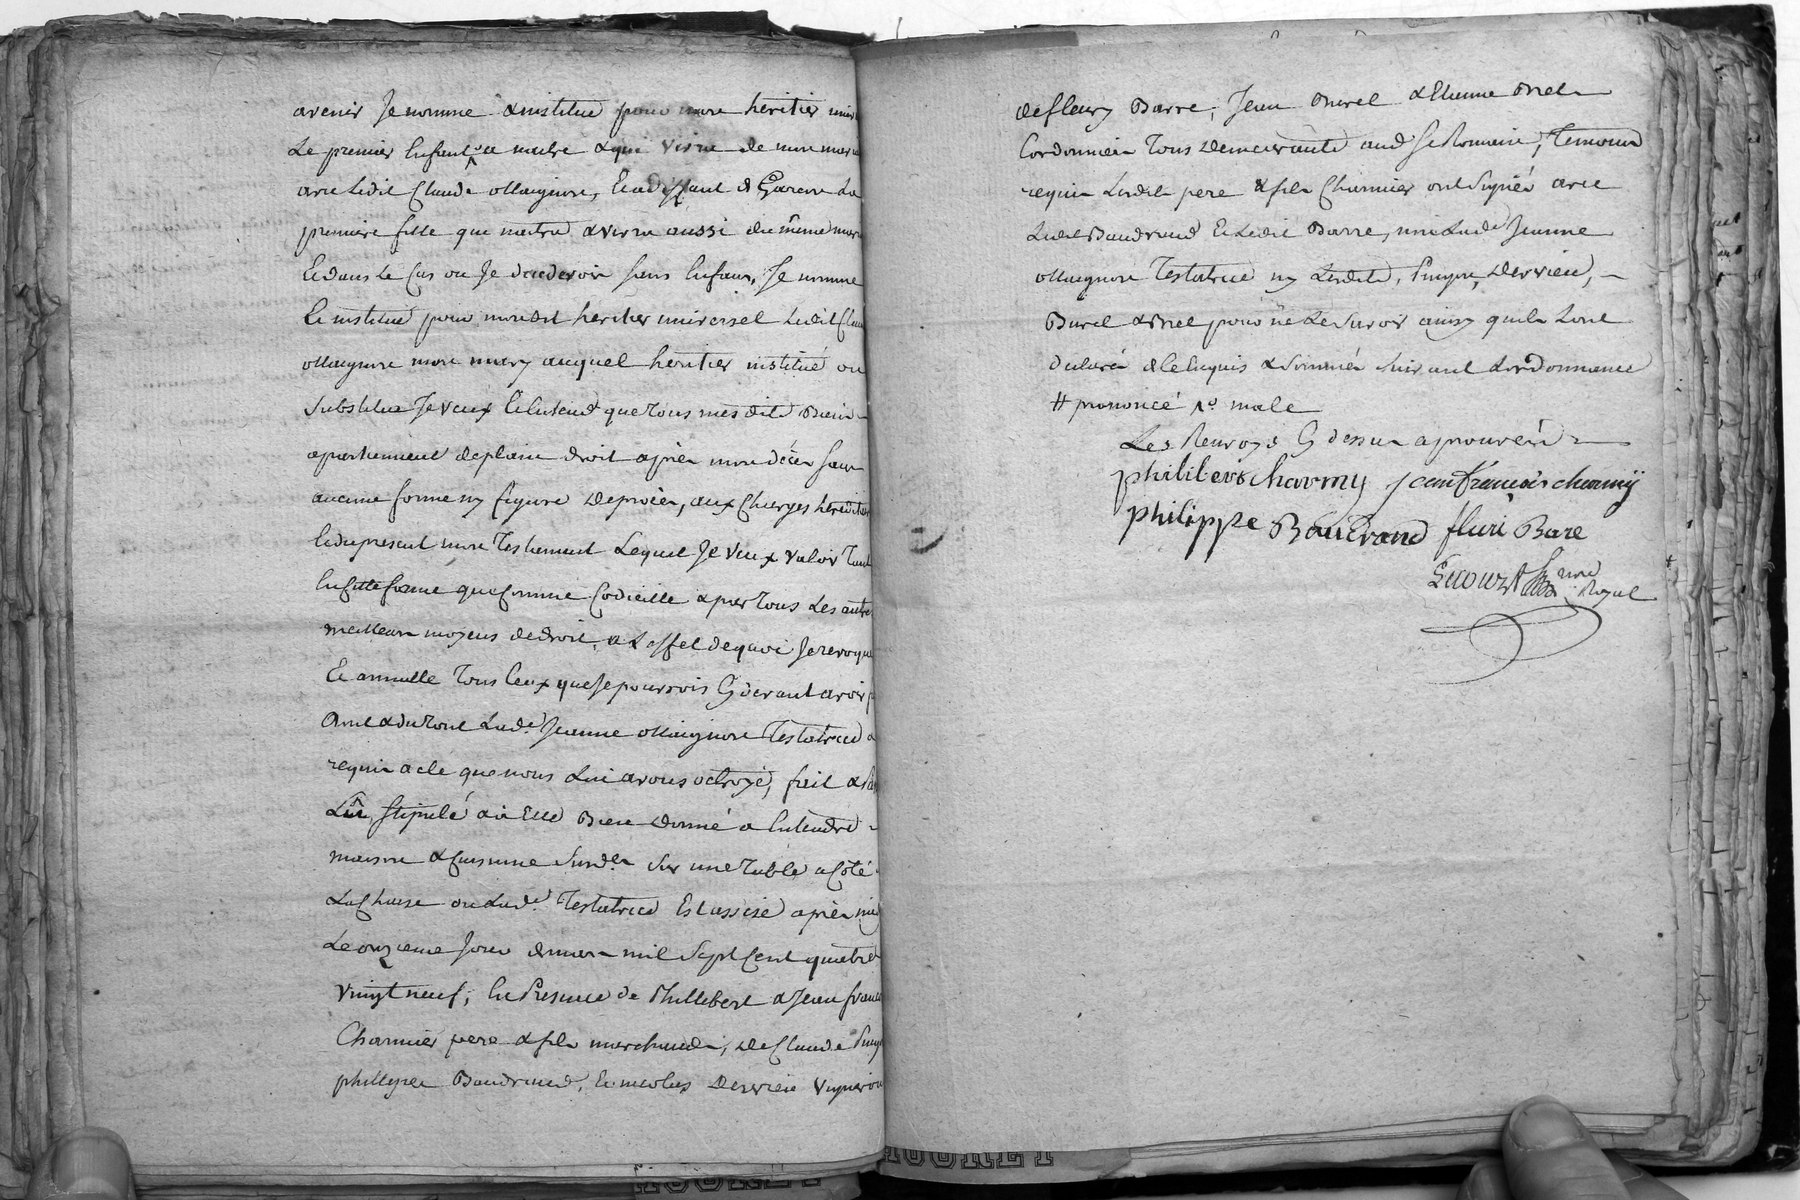 avenir Je nomme & institue pour mon heritier univ
Le premier Enfant qui naitra & qui vivra de mon maria
avec Ledit Claude Maignon, Et a deffaut de Garcon La
premiere fille qui naitra & vivra aussi du même maria
Et dans Le Cas ou Je decederois sans Enfans, Je nomme
Et institue pour mondit heritier universel Ledit Claude
Maignon mon mary auquel heritier institué ou
Substitué Je veux Et Entend que tous mesdits Biens
apartiennent de plain droit après mon décès sans
aucune forme ny figure de procès, aux Charges hereditaires
Et du present mon Testament Lequel Je veux valoir Tant
En Cette forme que Comme Codicille & par Tous Les autres
meilleurs moyens de droit, a L'effet de quoi Je revoque
Et annulle Tous Ceux que Je pourrois Cy devant avoir f
Dont & du tout Lade. Jeanne Maignon Testatrice a
requis acte que nous Lui avons octroyé, fait &
Lû stipulé & à Elle Bien donné a Entendre
maison & Cuisine Susde. sur une Table a Côté
La Chaise ou Lade. Testatrice Est assise après mi
Le onzieme Jour de mars mil Sept Cent quatre
vingt neuf, En Presence de Phillibert & Jean fran
Charmier pere & fils marchands, de Claude
phillippe Baudrand, Et nicolas Dervieu vigneron
de fleury Barre, Jean Burel & Etienne Brel
Cordonnier Tous demeurants aud. St Romain, Temoins
requis Lesdits pere & fils Charmier ont Signés avec
Ledit Baudrand Et Ledit Barre, non Lade. Jeanne
Maignon Testatrice ny Lesdits, Dervieu,
Burel & Brel pour ne Le Savoir ainsy qu'ils L'ont
declaré de Ce Enquis & Sommés Suivant L'ordonnance
# prononcé no. male
Les Renvoys Cy dessus aprouvées
philibers Charmy jean françois charmÿ
philippe Baudrand fluri Bare
nore Royal